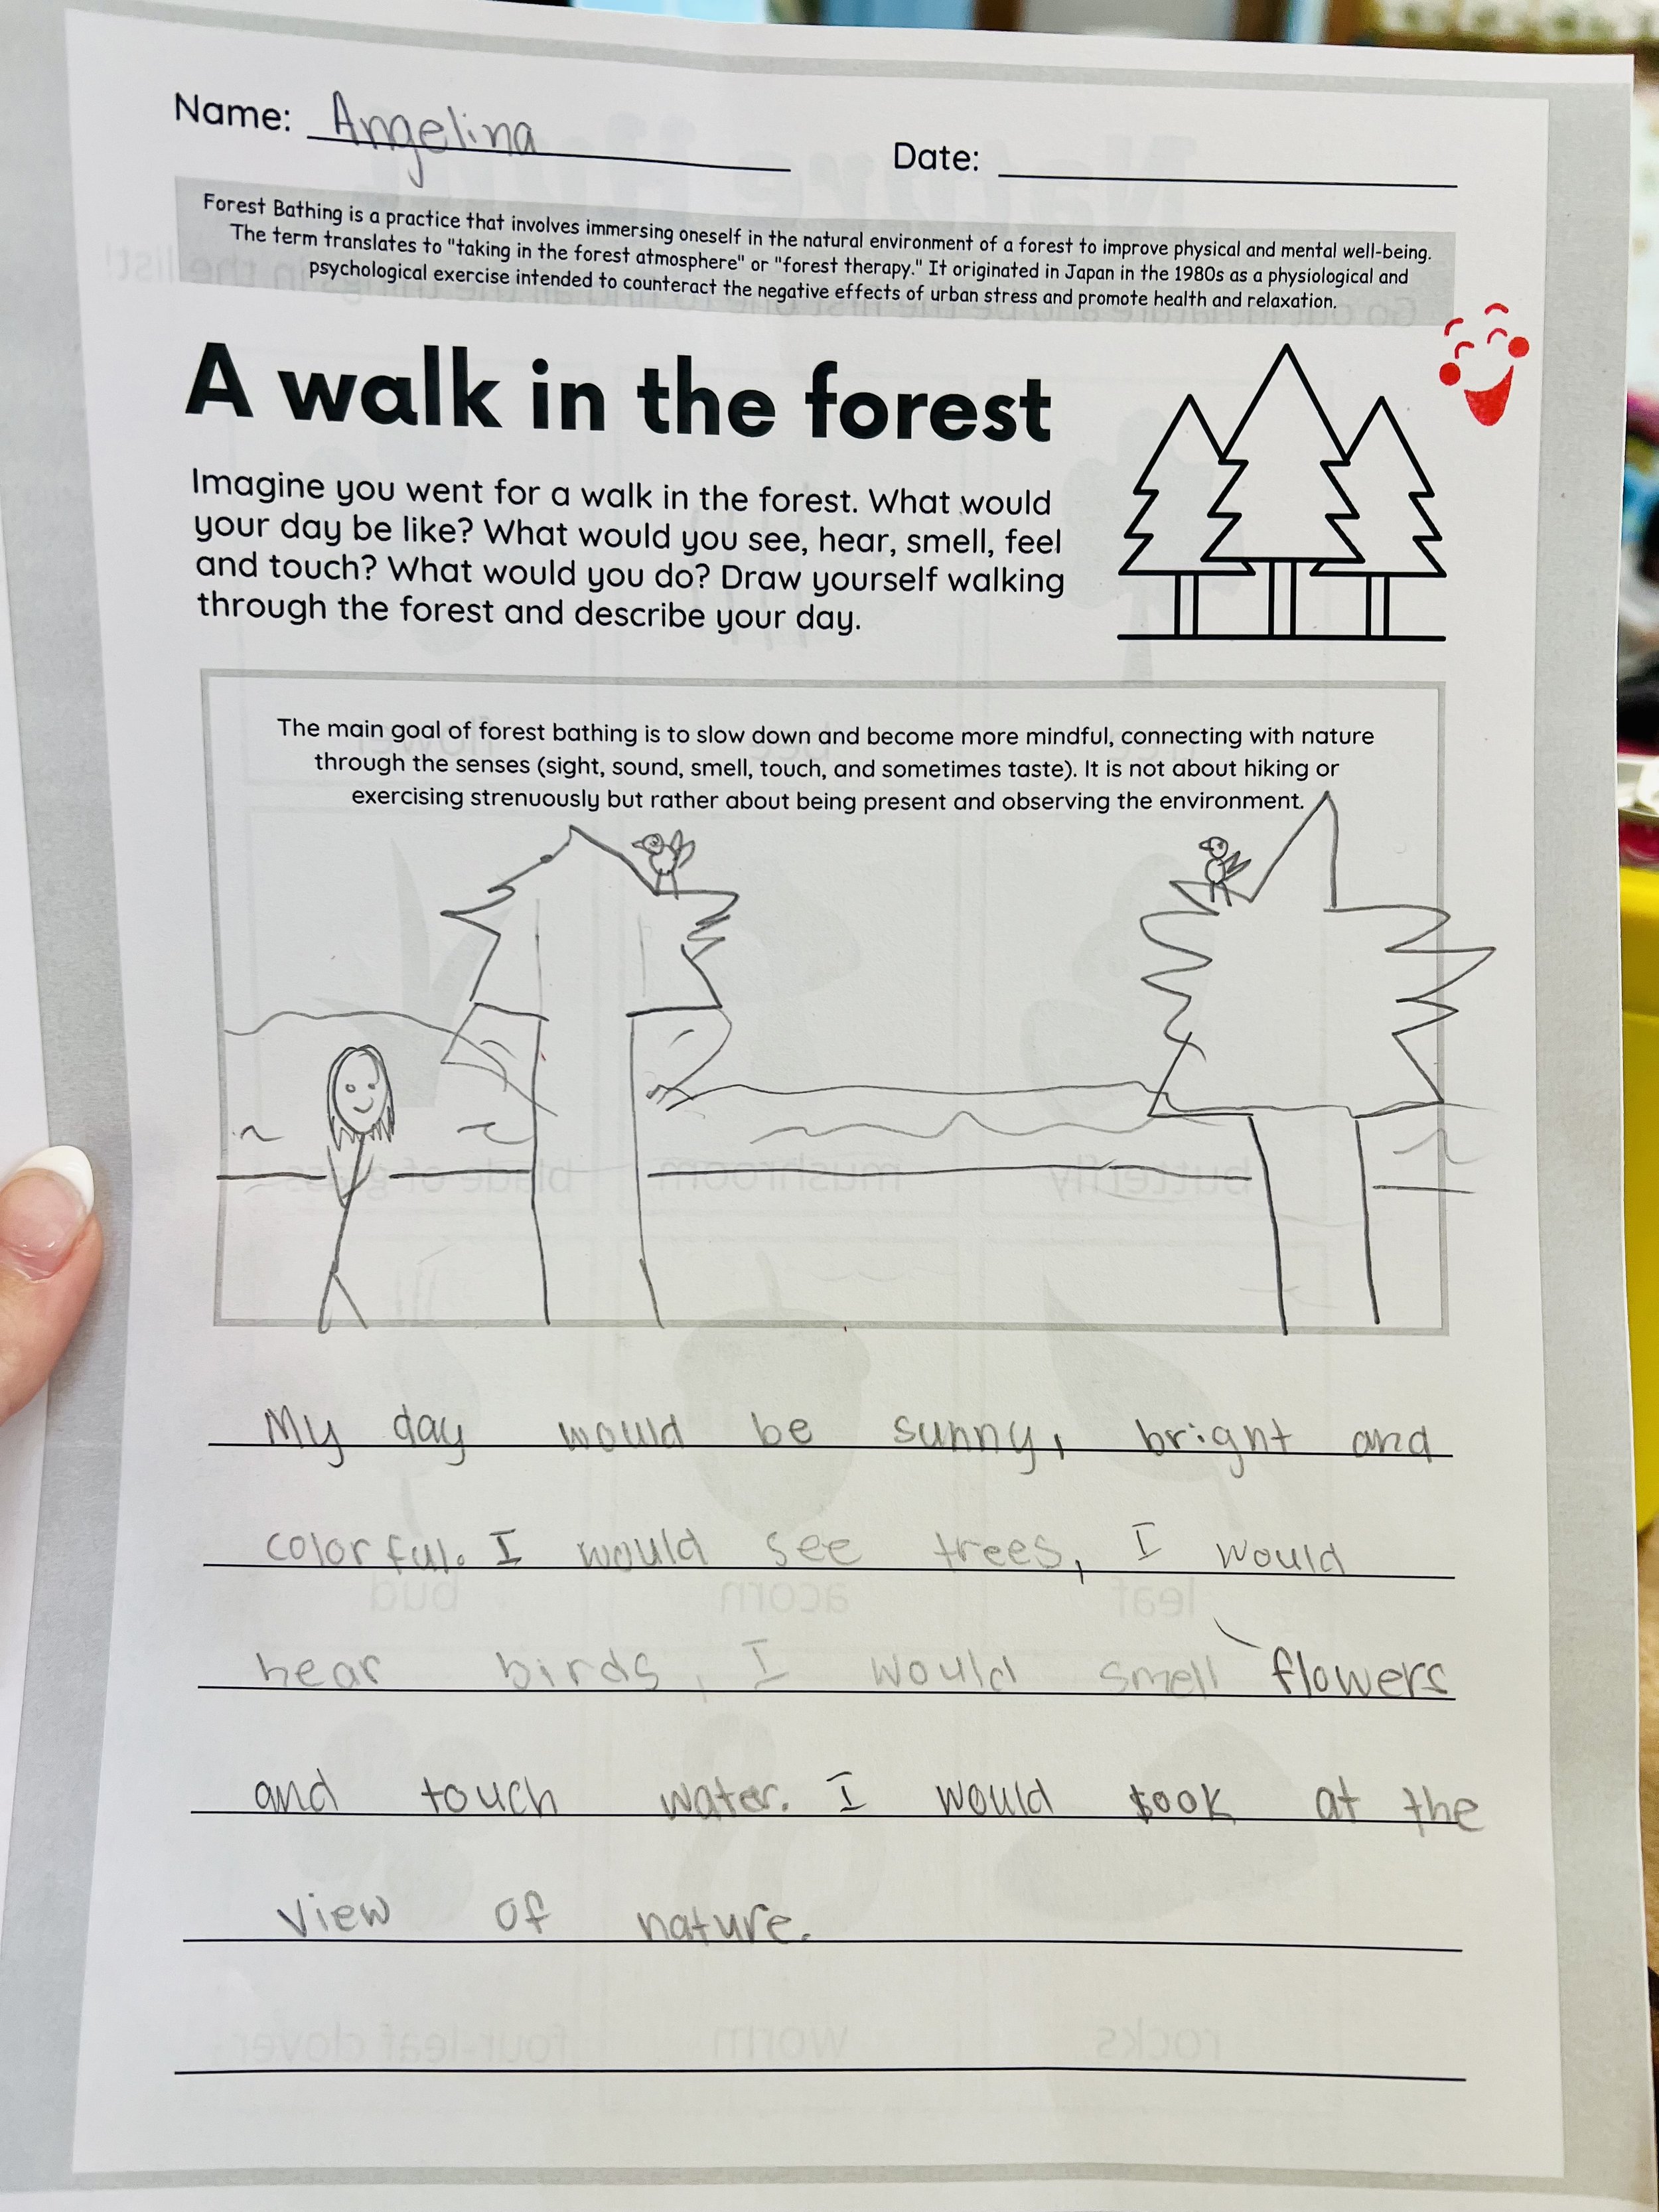 Name: Angelina
Date:
Forest Bathing is a practice that involves immersing oneself in the natural environment of a forest to improve physical and mental well-being.
The term translates to "taking in the forest atmosphere" or "forest therapy." It originated in Japan in the 1980s as a physiological and
psychological exercise intended to counteract the negative effects of urban stress and promote health and relaxation.
A walk in the forest
Imagine you went for a walk in the forest. What would
your day be like? What would you see, hear, smell, feel
and touch? What would you do? Draw yourself walking
through the forest and describe your day.
The main goal of forest bathing is to slow down and become more mindful, connecting with nature
through the senses (sight, sound, smell, touch, and sometimes taste). It is not about hiking or
exercising strenuously but rather about being present and observing the environment.
butterfly mushroom blade of grass
My day would be sunny, bright and
colorful. I would see trees, I would
bud acorn leaf
hear birds, I would smell flowers
and touch water. I would look at the
view of nature.
four-leaf clover worm rocks